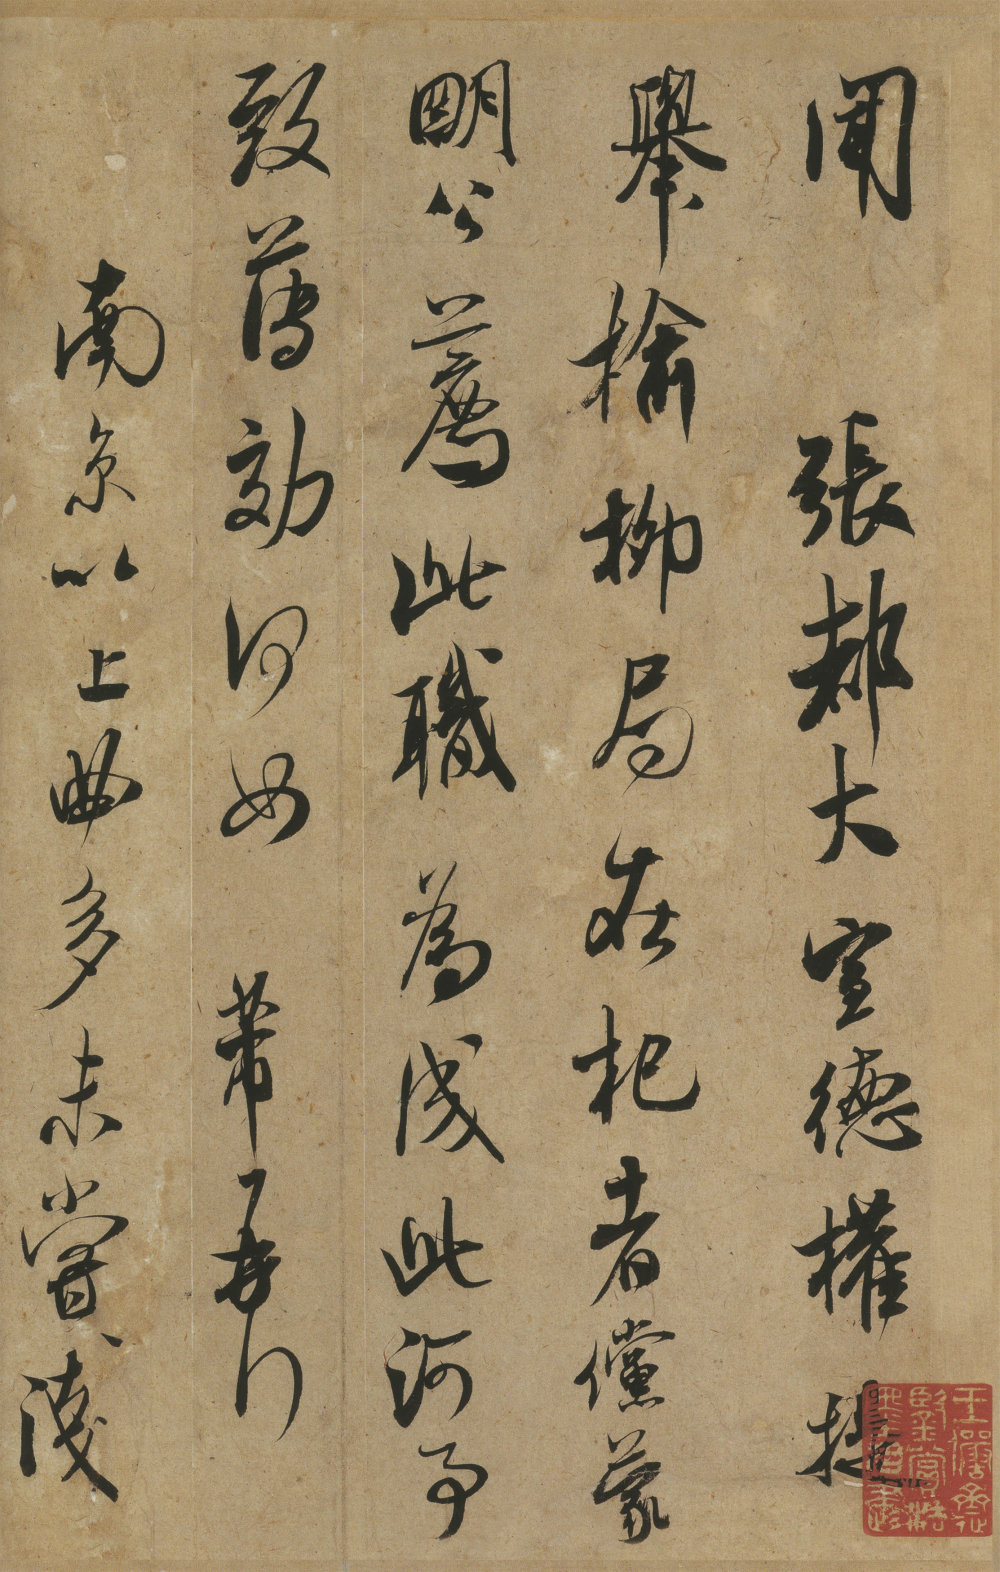 聞 張都大宣德權提
舉榆柳局在杞者儻蒙
明公薦此職為成此河事
致薄効何如 芾再行
南京以上曲多未嘗淺